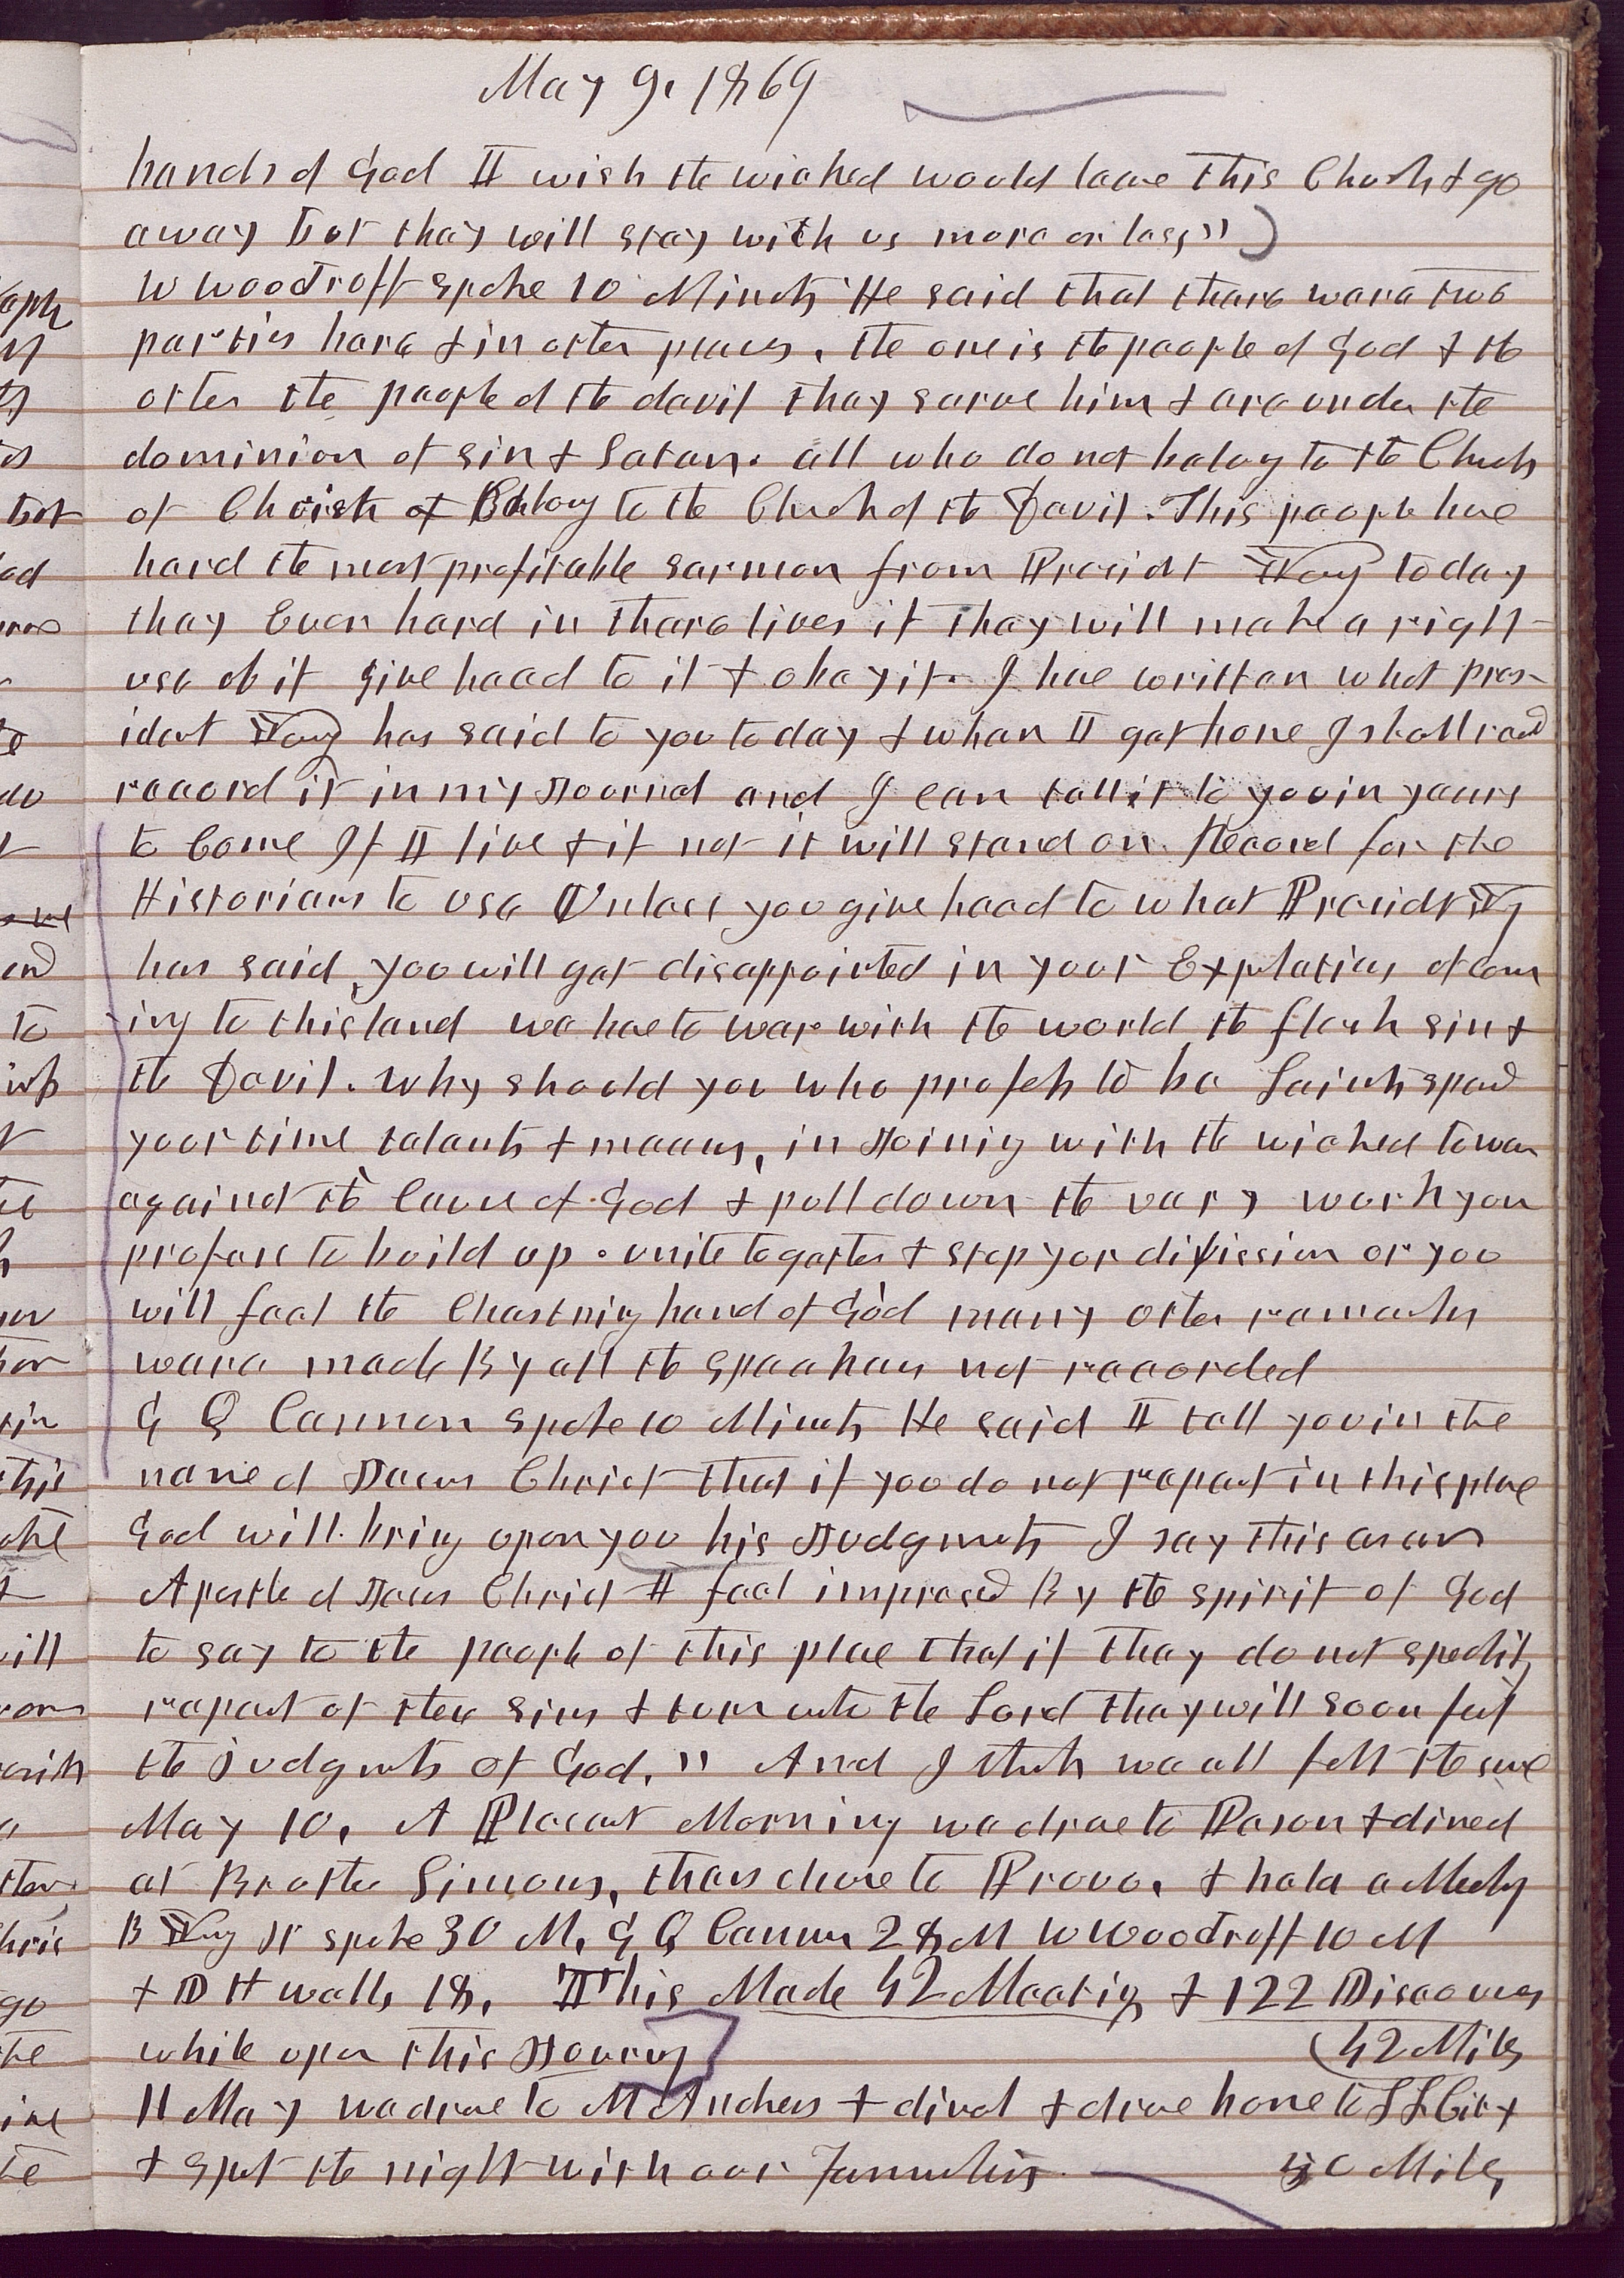 May 9, 1869
hands of God I wish the wicked would leave this Church & go
away but they will stay with us more or less")
W Woodruff spoke 10 Minuts He said that there were two
parties here & in other places, the one is the people of God & the
other the people of the devil they serve him & are under the
dominion of sin & Satan. all who do not belong to the Church
of Christ Belong to the Church of the Devil. This people have
heard the most profitable sermon from President Young to day
they Ever heard in there lives if they will make a right
use of it give heed to it & obey it. I have written what pres-
ident Young has said to you to day & when I get home I shall
record it in my Journal and I can tell it to you in years
to Come If I live & if not it will stand on Record for the
Historians to use Unless you give heed to what President Young
has said you will get disappointed in your Expectations of com
ing to this land we have to war with the world the flesh sin &
the Devil. Why should you who profess to be Saints spend
your time talents & means, in Joining with the wicked to war
against the laws of God & pull down the very work you
profess to build up. unite together & stop your division or you
will feel the Chastning hand of God many other remarks
were made By all the speakers not recorded
G Q Cannon spoke 10 Minuts He said I tell you in the
name of Jesus Christ that if you do not repent in this place
God will bring upon you his Judgments I say this as an
Apostle of Jesus Christ I feel impressed By the spirit of God
to say to the people of this place that if they do not speedily
repent of their sins & turn unto the Lord they will soon feel
the judgments of God," And I think we all felt the same
May 10, A Plesant Morning we drove to Payson & dined
at Brother Simons, then drove to Provo, & held a Meeting
B Young spoke 30 M, G Q Cannon 28 M W Woodruff 10 M
& D H Wells 18, This Made 42 Meetings & 122 Discourses
while upon this Journey
(42 Miles
11 May we drove to & dined & drove home to S L City
& spent the night with our Families Miles